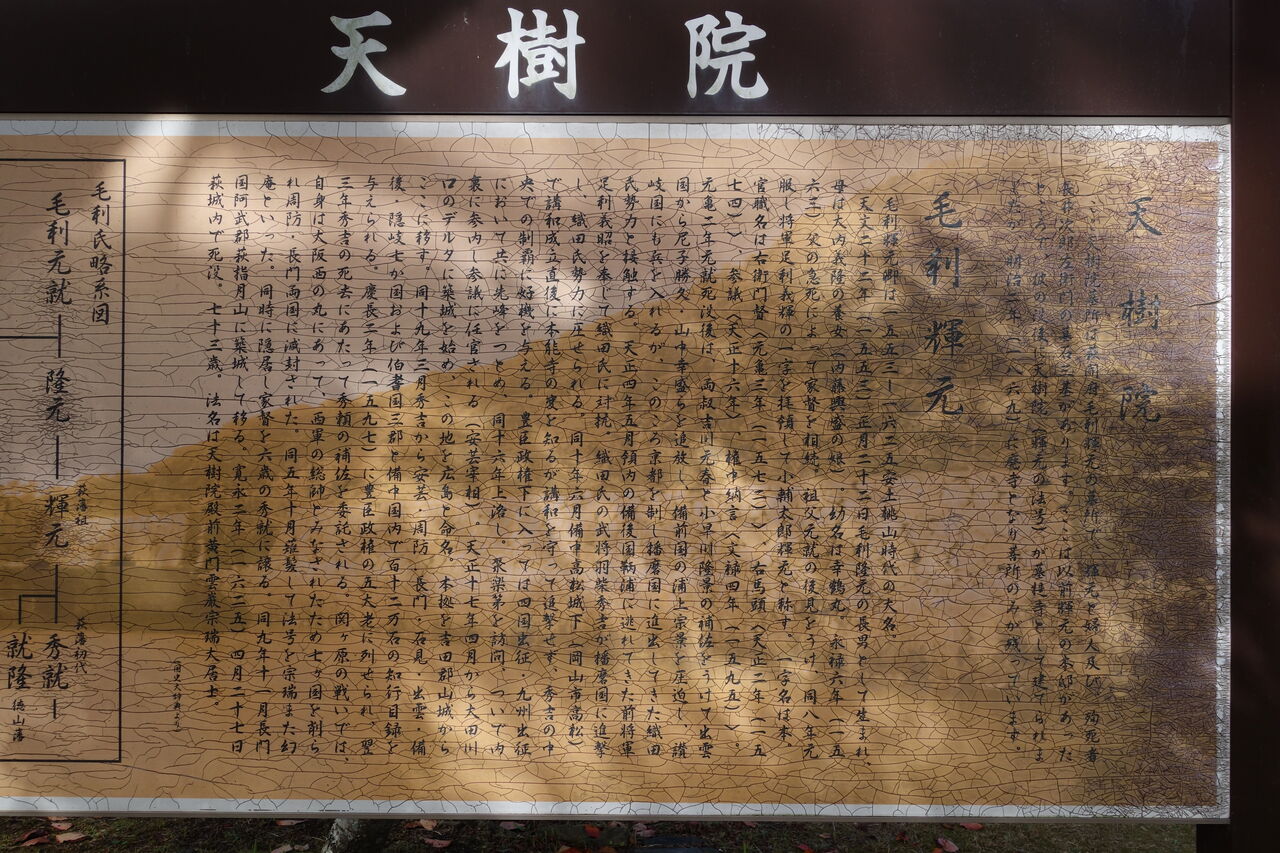 天樹院
天樹院
天樹院墓所は萩開府毛利輝元の墓所で、輝元と婦人及び、殉死者
長井次郎左衛門の墓石三基があります。ここは以前輝元の本邸があった
ところで、彼の没後、天樹院（輝元の法号）が墓提寺として建てられま
したが、明治二年（一八六九）に廃寺となり墓所のみが残っています。
毛利輝元
毛利輝元卿は（一五五三ー一六二五安土桃山時代の大名
天文二十二年（一五五三）正月二十二日毛利隆元の長男として生まれ、
母は大内義隆の養女（内藤興盛の娘） 幼名は幸鶴丸。永禄六年（一五
六三）父の急死によって家督を相続。祖父元就の後見をうけ、同八年元
服し将軍足利義輝の一字を拝領して小輔太郎輝元と称す。一字名は本。
官職名は右衛門督（元亀三年（一五七二））、右馬頭（天正二年（一五
七四））参議（天正十六年）、権中納言（文禄四年（一五九五））。
元亀二年元就死没後は、両叔吉川元春と小早川隆景の補佐をうけて出雲
国から尼子勝久・山中幸盛らを追放し、備前国の浦上宗景を圧迫し、讃
岐国にも兵を入れるが、このころ京都を制し播磨国に進出してきた織田
氏勢力と接触する。天正四年五月領内の備後国鞆浦に逃れてきた前将軍
足利義昭を奉じて織田氏に対抗。織田氏の武将羽柴秀吉が播磨国に進撃
し、織田氏勢力に圧せられる。同十年六月備中高松城下（岡山市高松）
で講和成立直後に本能寺の変を知るが講和を守って追撃せず、秀吉の中
央での制覇に好機を与える。豊臣政権下に入っては四国出征・九州出征
において共に先峰をつとめ、同十六年上洛し、聚楽第を訪問、ついで内
裏に参内し参議に任官される（安芸宰相）。天正十七年四月から太田川
口のデルタに築城を始め、この地を広島と命名。本拠を吉田郡山城から
ここに移す。同十九年三月秀吉から安芸・周防・長門・石見・出雲・備
後・隠岐七か国および伯耆国三郡と備中国内で百十二万石の知行目録を
与えられる。慶長二年（一五九七）に豊臣政権の五大老に列せられ、翌
三年秀吉の死去にあたって秀頼の補佐を委託される。関ヶ原の戦いでは、
自身は大阪西の丸にあって、西軍の総帥とみなされたため七ヶ国を削ら
れ周防・長門両国に減封された。同五年十月薙髪して法号を宗瑞また幻
庵といった。同時に隠居し家督を六歳の秀就に譲る。同九年十一月長門
国阿武郡萩指月山に築城して移る。寛永二年（一六二五）四月二十七日
萩城内で死没。七十三歳。法名は天樹院殿前黄門雲巌宗瑞大居士。
（国史大辞典より）
毛利氏略系図
毛利元就
隆元
萩藩祖
輝元
萩藩初代
秀就
就隆
徳山藩